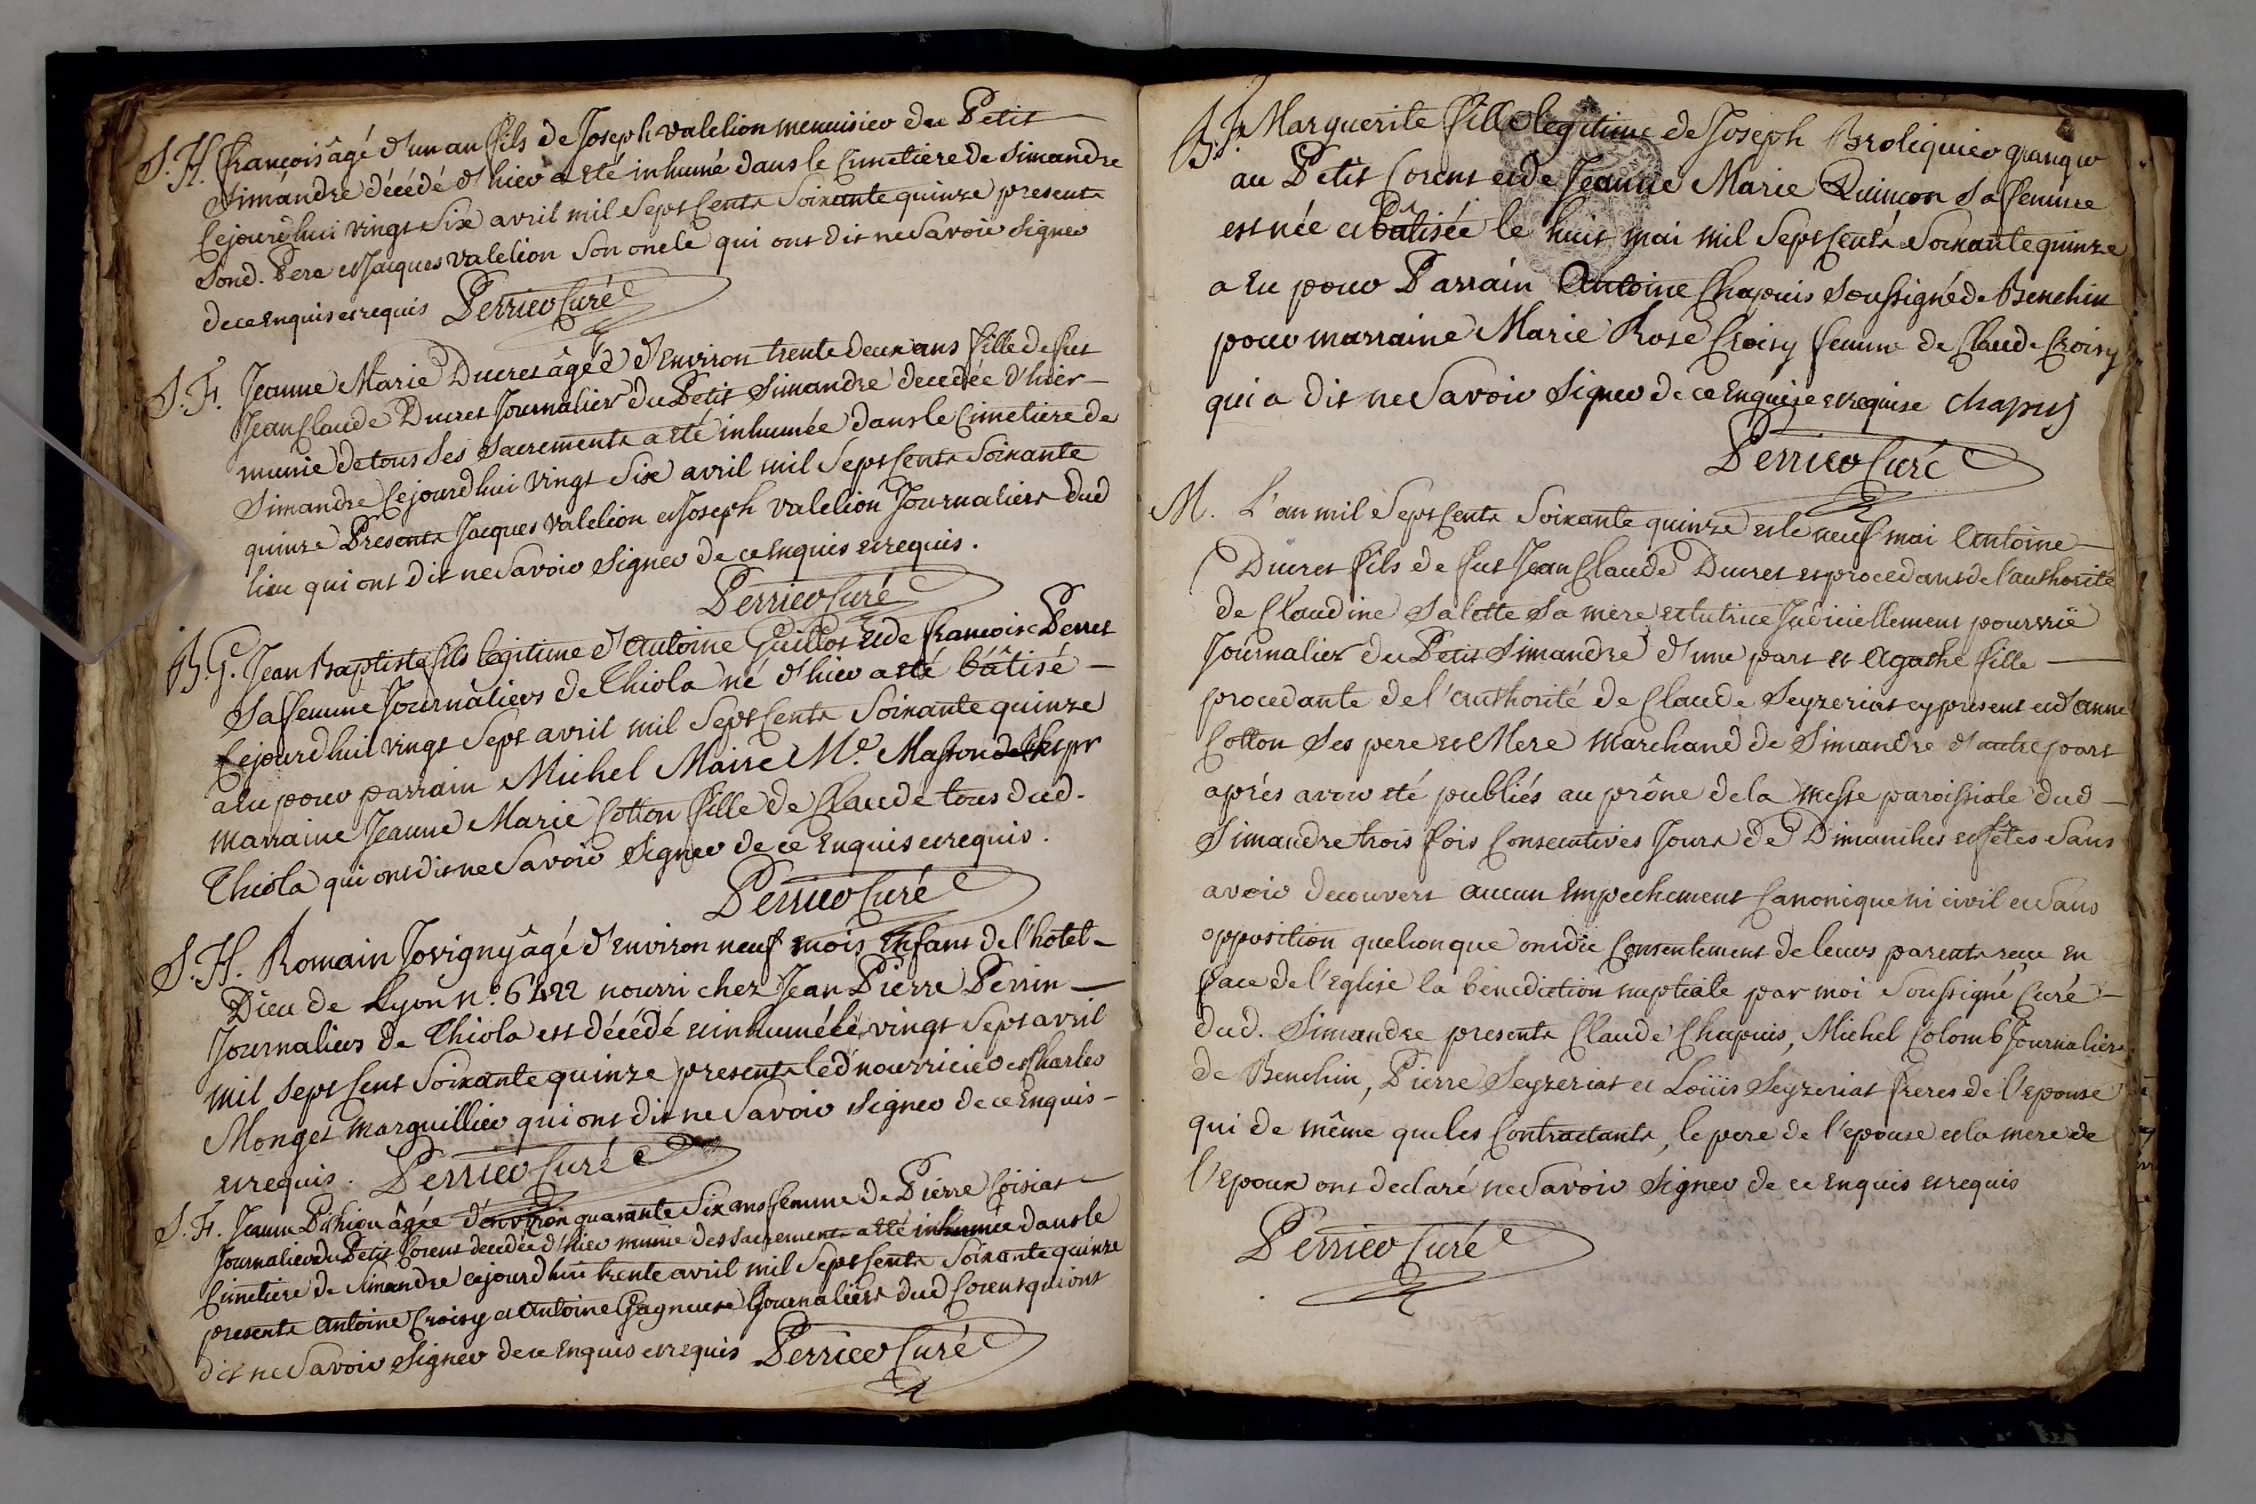 S. H. françois âgé d'un an fils de Joseph valelion menuisier du Petit
Simandre décédé d'hier a eté inhumé dans le Cimetiere de Simandre
cejourd'huii vingt Six avril mil Sept Cents Soixante quinze presents
Sond. Pere et Jacques valelion Son oncle qui ont dit ne Savoir Signer
de ce Enquis et requis Perrier Curé
S. F. Jeanne Marie Ducret âgée d'Environ trente deux ans fille de fut
Jean Claude Ducret Journalier du Petit Simandre decedée d'hier
munie de tous Ses Sacrements a eté inhumée dans le Cimetiere de
Simandre Cejourdhui vingt Six avril mil Sept Cents Soixante
quinze Presents Jacques valelion et Joseph valelion Journaliers dud
lieu qui ont dit ne Savoir Signer de ce Enquis et requis.
Perrier Curé
B. G. Jean Baptiste fils legitime d'antoine Guillot et de françoise Perret
Sa femme Journaliers de Thiola né d'hier a eté bâtisé
Cejourdhui vingt Sept avril mil Sept Cents Soixante quinze
a Eu pour parrain Michel Maire Me. Masson
marraine Jeanne Marie Cotton fille de Claude tous dud.
Thiola qui ont dit ne Savoir Signer de ce Enquis et requis.
Perrier Curé
S. H. Romain Jovigny âgé d'Environ neuf mois Enfant de l'hotel
Dieu de Lyon n.o 6422 nourri chez Jean Pierre Perrin
Journaliers de Thiola est décédé et inhumé le vingt Sept avril
mil Sept Cent Soixante quinze presents led nourricier et Charles
Monget marguillier qui ont dit ne Savoir Signer de ce Enquis
et requis. Perrier Curé
S. F. Jeanne Pithion âgée d'environ quarante Six ans femme de Pierre Coisiat
Journalier du Petit Corent decedée d'hier munie des Sacrements a eté inhumée dans le
Cimetiere de Simandre cejourdhui trente avril mil Sept Cents Soixante quinze
presents antoine Croisy et antoine Gagneure Journaliers dud Corent qui ont
dit ne Savoir Signer de ce Enquis et requis Perrier Curé
B. F. Marguerite fille legitime de Joseph Broliquier granger
au Petit Corent et de Jeanne Marie Quinçon Sa femme
est née et bâtisée le huit mai mil Sept Cents Soixante quinze
a Eu pour Parrain Antoine Chapuis Soussigné de Benchin
pour marraine Marie Rose Croisy femme de Claude Croisy
qui a dit ne Savoir Signer de ce Enquise et requise Chapuy
Perrier Curé
M. L'an mil Sept Cents Soixante quinze et le neuf mai Antoine
Ducret fils de fut Jean Claude Ducret et procedant de l'authorité
de Claudine Salette Sa mere et tutrice Judiciellement pourvuë
Journalier du Petit Simandre d'une part et Agathe fille
procedante de l'authorité de Claude Seyzeriat cy present et d'anne
Cotton Ses pere et Mere marchand de Simandre d'autre part
aprés avoir eté publiés au prône de la Messe paroissiale dud
Simandre trois fois Consecutives Jours de Dimanches et fêtes Sans
avoir decouvert aucun Empechement Canonique ni civil et Sans
opposition quelconque ont du Consentement de leurs parents recu En
face de l'Eglise la bénediction nuptiale par moi Soussigné Curé
dud. Simandre presents Claude Chapuis, Michel Colomb Journaliers
de Benchin, Pierre Seyzeriat et Loüis Seyzeriat freres de l'Epouse
qui de même que les Contractants, le pere de l'epouse et la mere de
l'Epoux ont declaré ne Savoir Signer de ce Enquis et requis
Perrier Curé